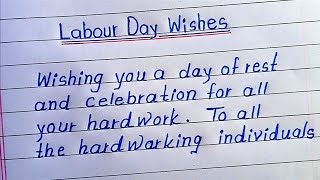 Labour Day Wishes
Wishing you a day of rest
and celebration for all
your hardwork. To all
the hardwarking individuals